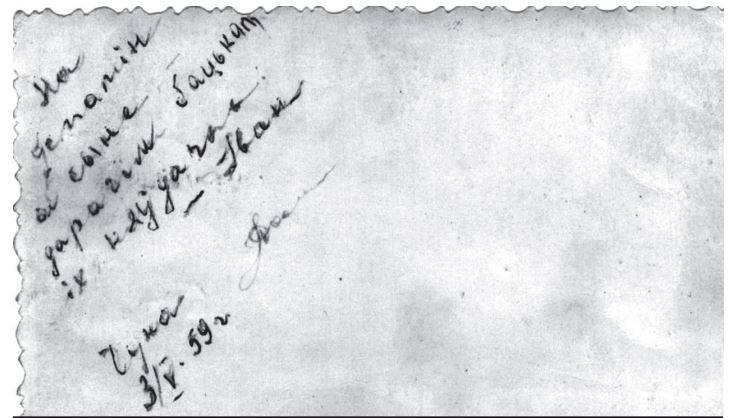 На
успамін
аб сыне Бацькам
дарагім
іх няўдачны
— Іван
Чуна
3/V. 59 г